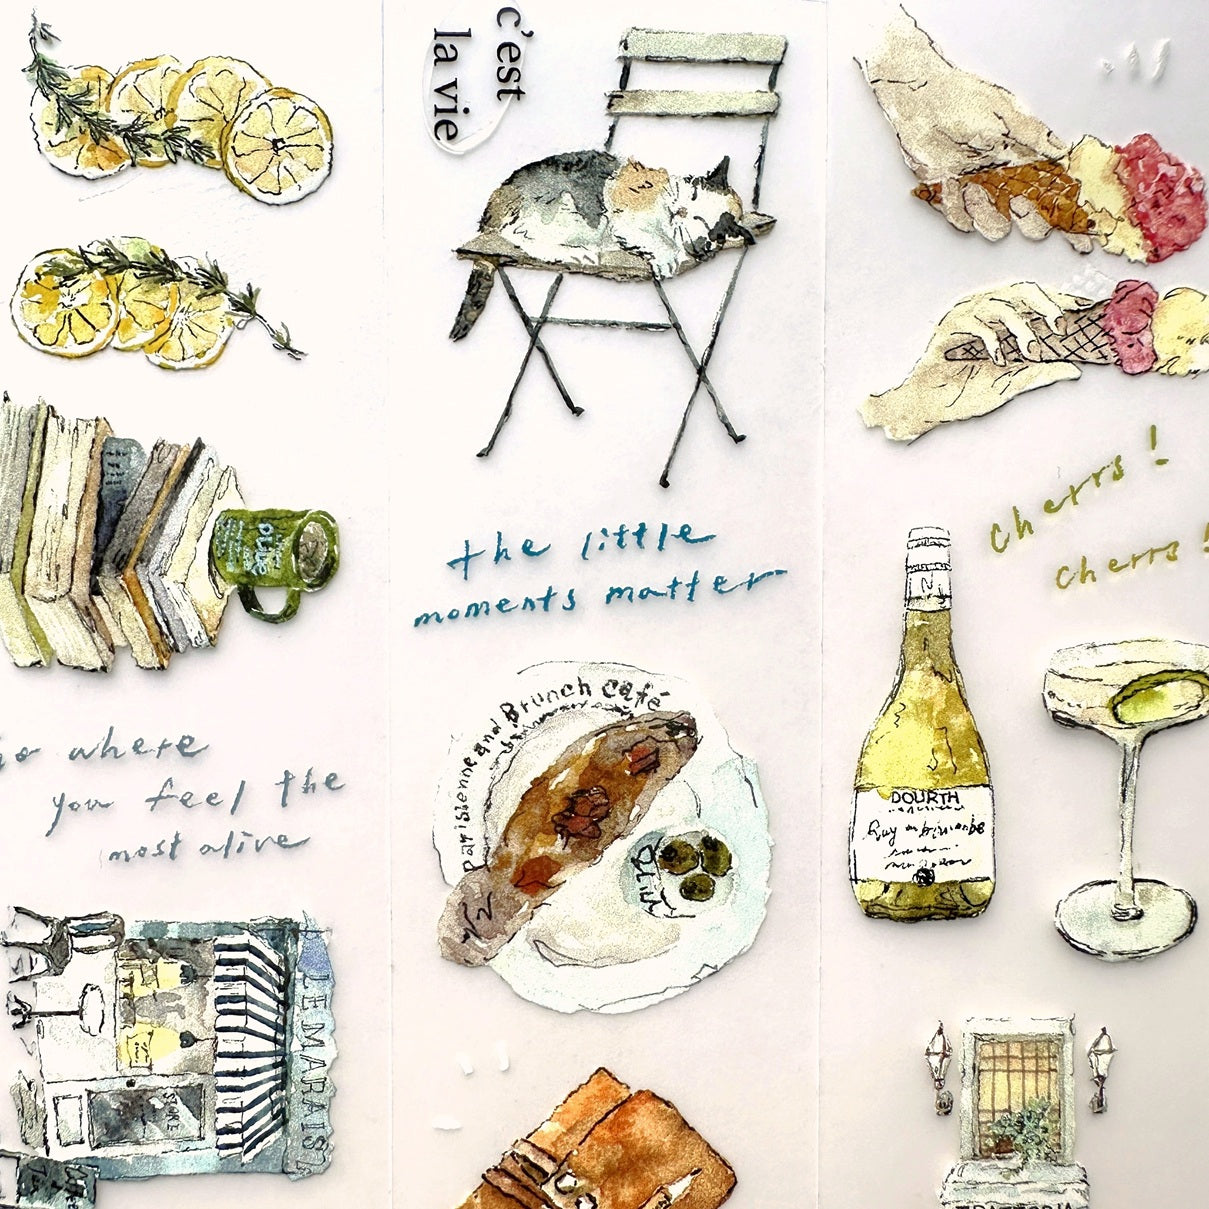 c'est
la vie
the little
moments matter
Cherrs!
cherrs!
Parisienne and Brunch café
DOURTH
go where
you feel the
most alive
LE MARAIS
STORE
TRATTORIA